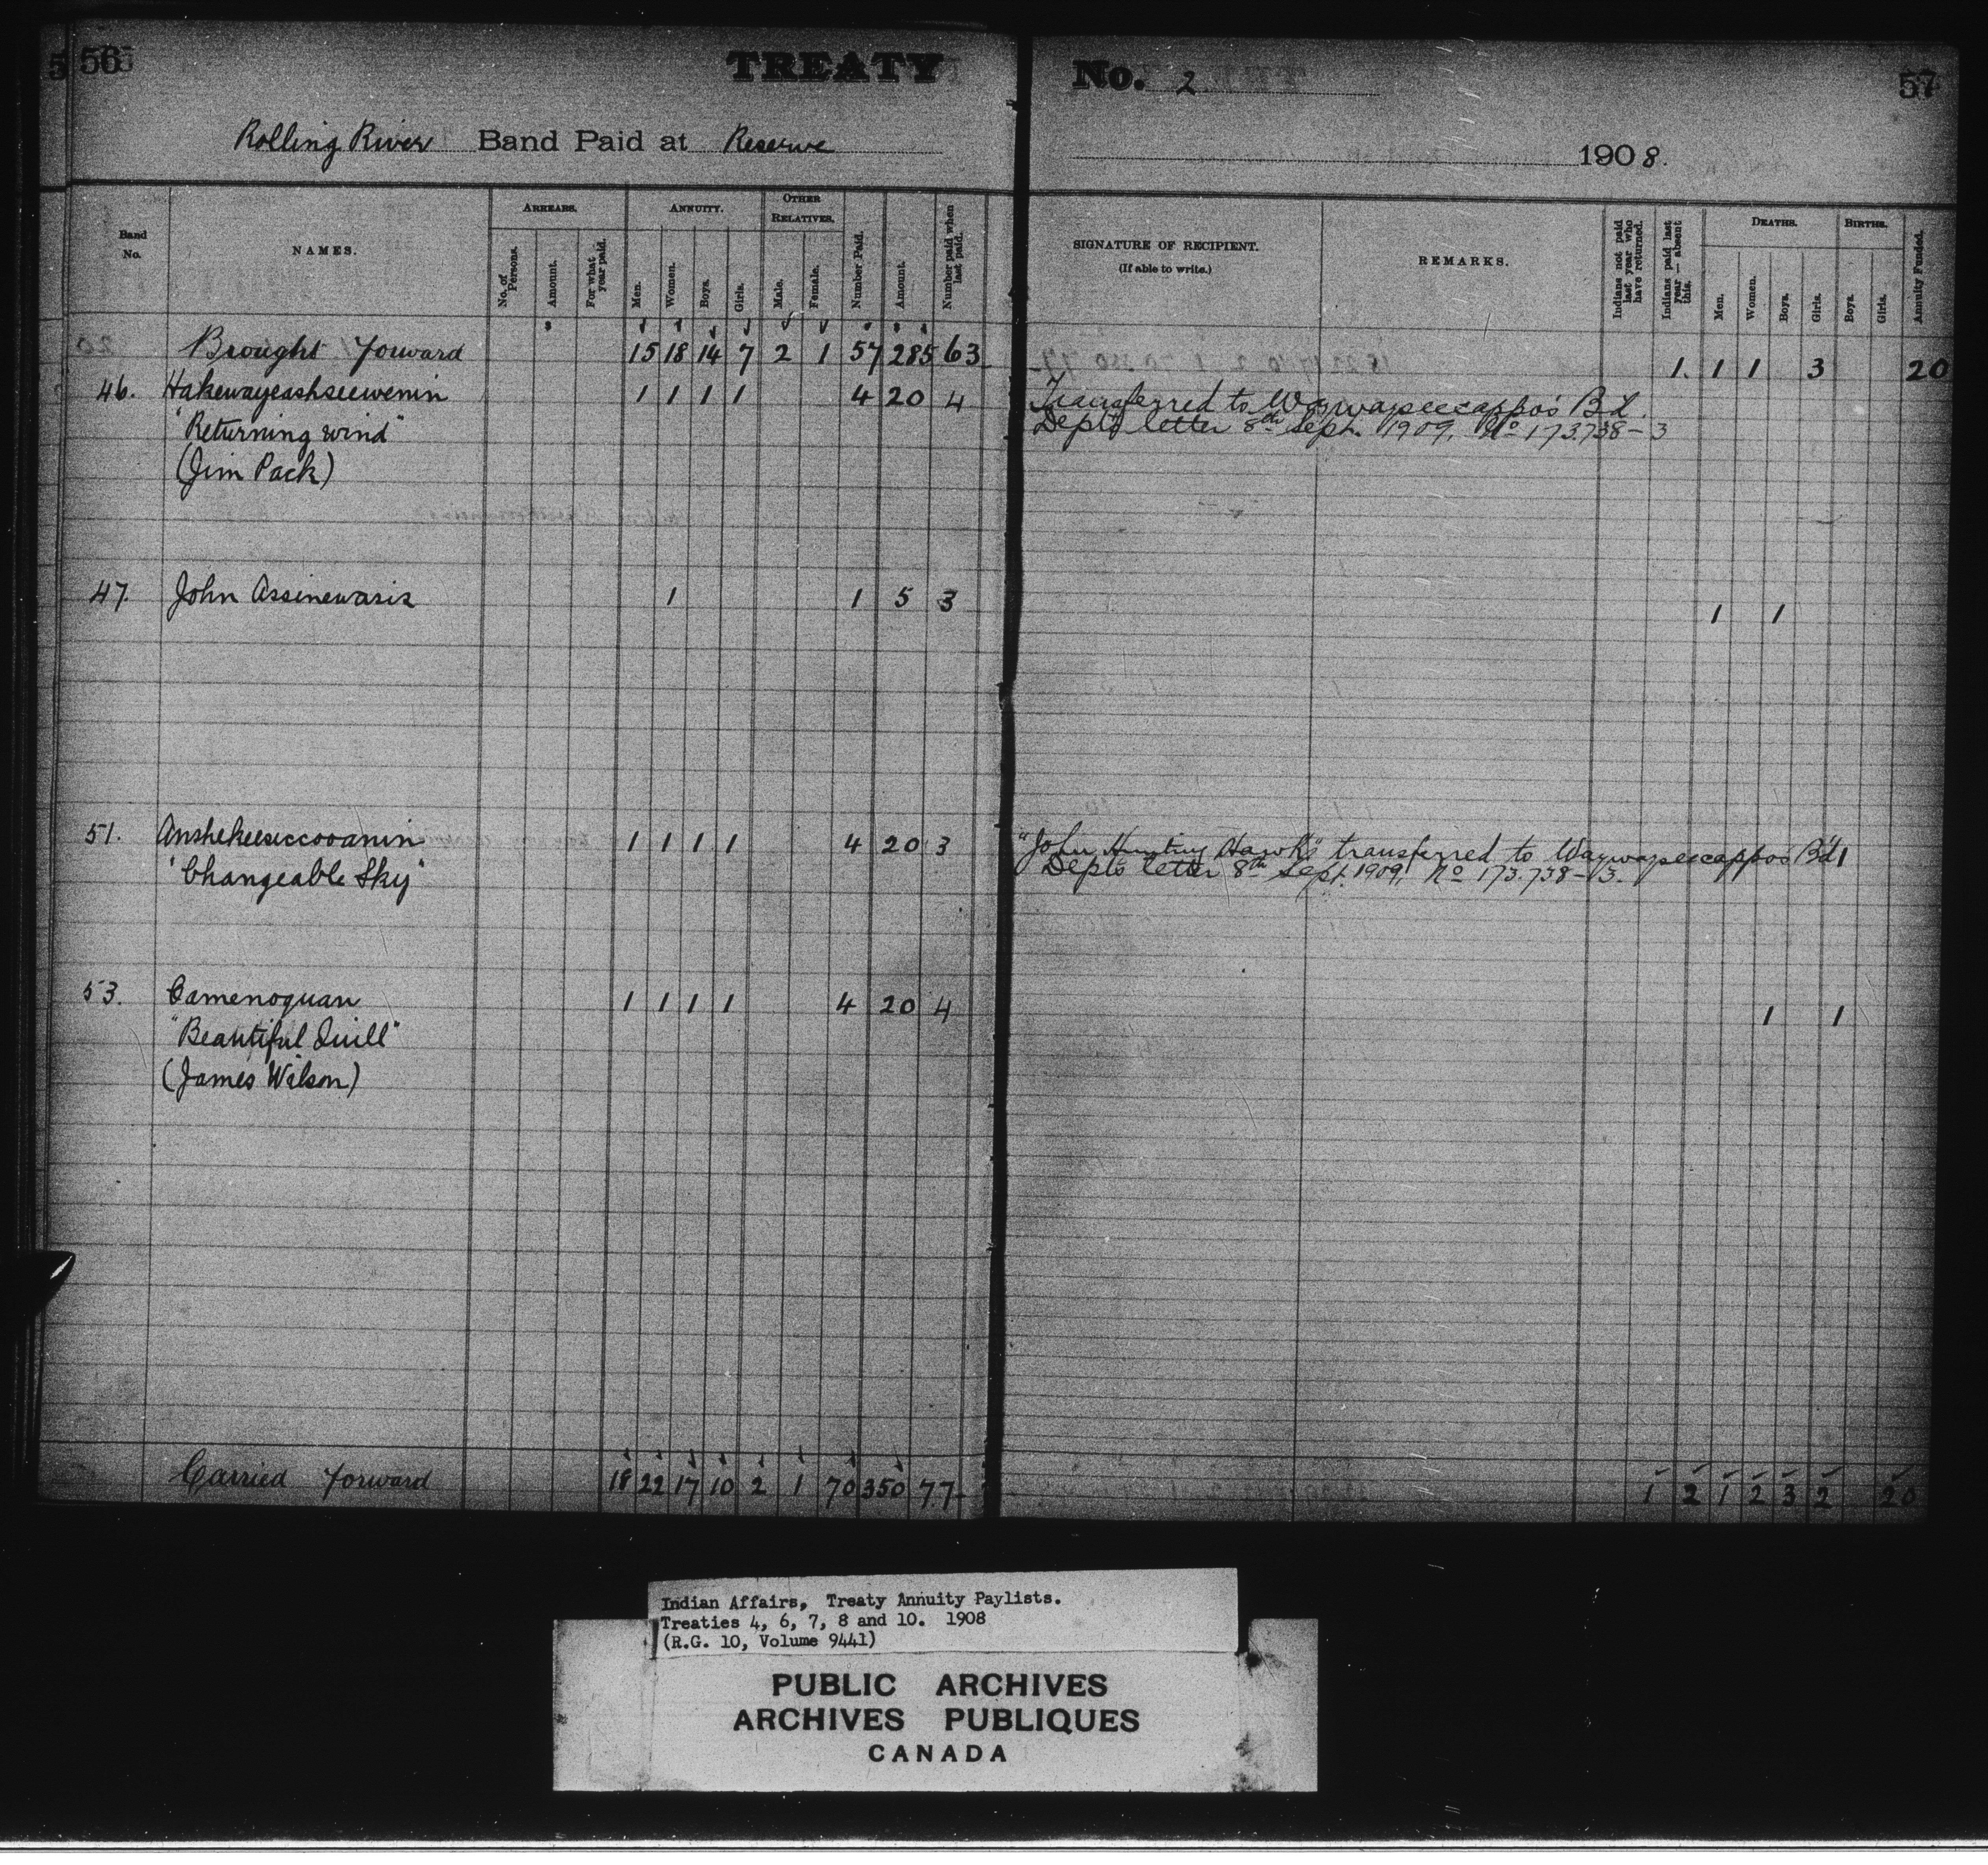 56
TREATY
No. 2
57
Rolling River Band Paid at Reserve
1908.
Band No.
NAMES.
ARREARS.
No. of Persons.
Amount.
For what year paid.
ANNUITY.
Men.
Women.
Boys.
Girls.
OTHER RELATIVES.
Male.
Female.
Number Paid.
Amount.
Number paid when last paid.
SIGNATURE OF RECIPIENT.
(If able to write.)
REMARKS.
Indians not paid last year who have returned.
Indians paid last year — absent this.
DEATHS.
Men.
Women.
Boys.
Girls.
BIRTHS.
Boys.
Girls.
Annuity Funded.
Brought Forward 15 18 14 7 2 1 57 285 63 1. 1 1 3 20
46. Hakewayeashseewenin 1 1 1 1 4 20 4 Transferred to Waywayseecappo's Bd.
"Returning wind" Dept's letter 8th Sept. 1909, No 173.738-3
(Jim Pack)
47. John Assinewasis 1 1 5 3 1 1
51. Anshekeesiccooanin 1 1 1 1 4 20 3 "John Hunting Hawk" transferred to Waywayseecappo's Bd 1
"Changeable Sky" Dept's letter 8th Sept. 1909, No 173.738-3.
53. Camenoquan 1 1 1 1 4 20 4 1 1
"Beautiful Quill"
(James Wilson)
Carried Forward 18 22 17 10 2 1 70 350 77 1 2 1 2 3 2 20
Indian Affairs, Treaty Annuity Paylists.
Treaties 4, 6, 7, 8 and 10. 1908
(R.G. 10, Volume 9441)
PUBLIC ARCHIVES
ARCHIVES PUBLIQUES
CANADA